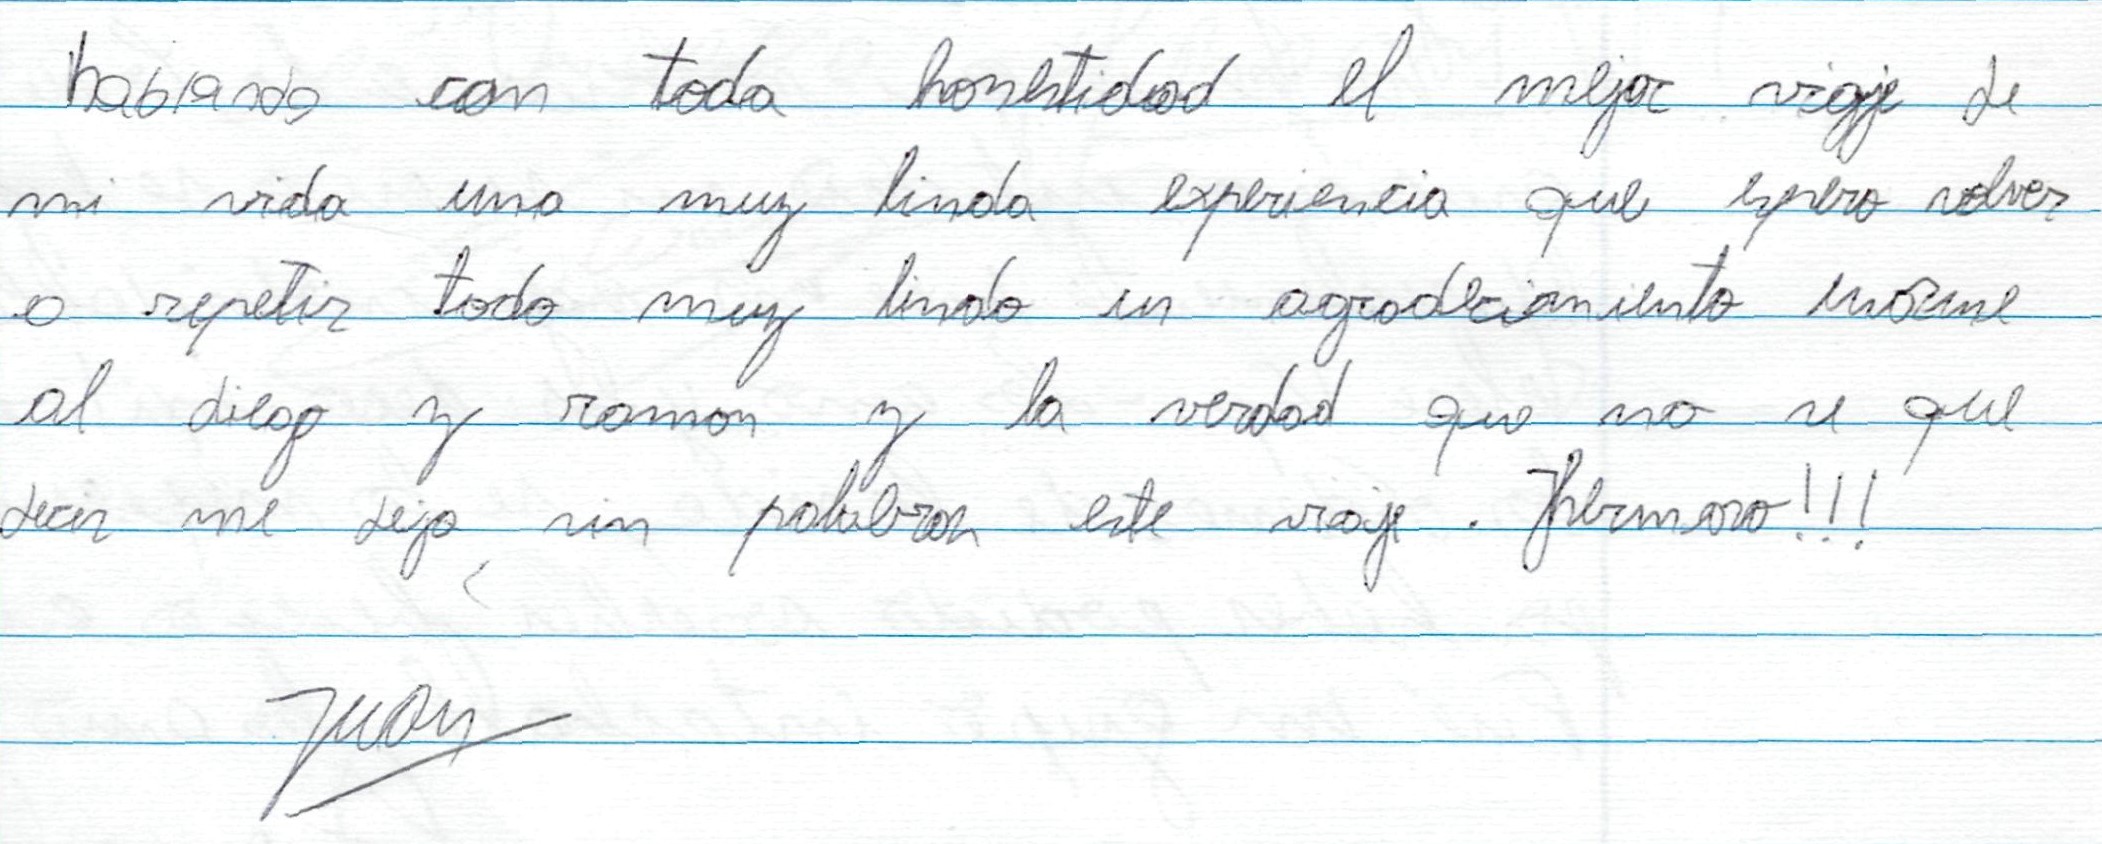 hablando con toda honestidad el mejor viaje de
mi vida una muy linda experiencia que espero volver
a repetir todo muy lindo un agradecimiento enorme
al diego y ramon y la verdad que no se que
decir me dejo sin palabras este viaje. Hermoso!!!
Juan